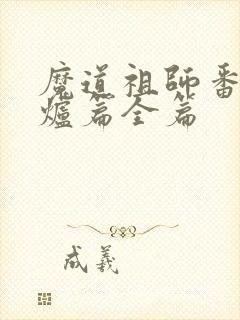 魔道祖師番
爐篇全篇
成羲